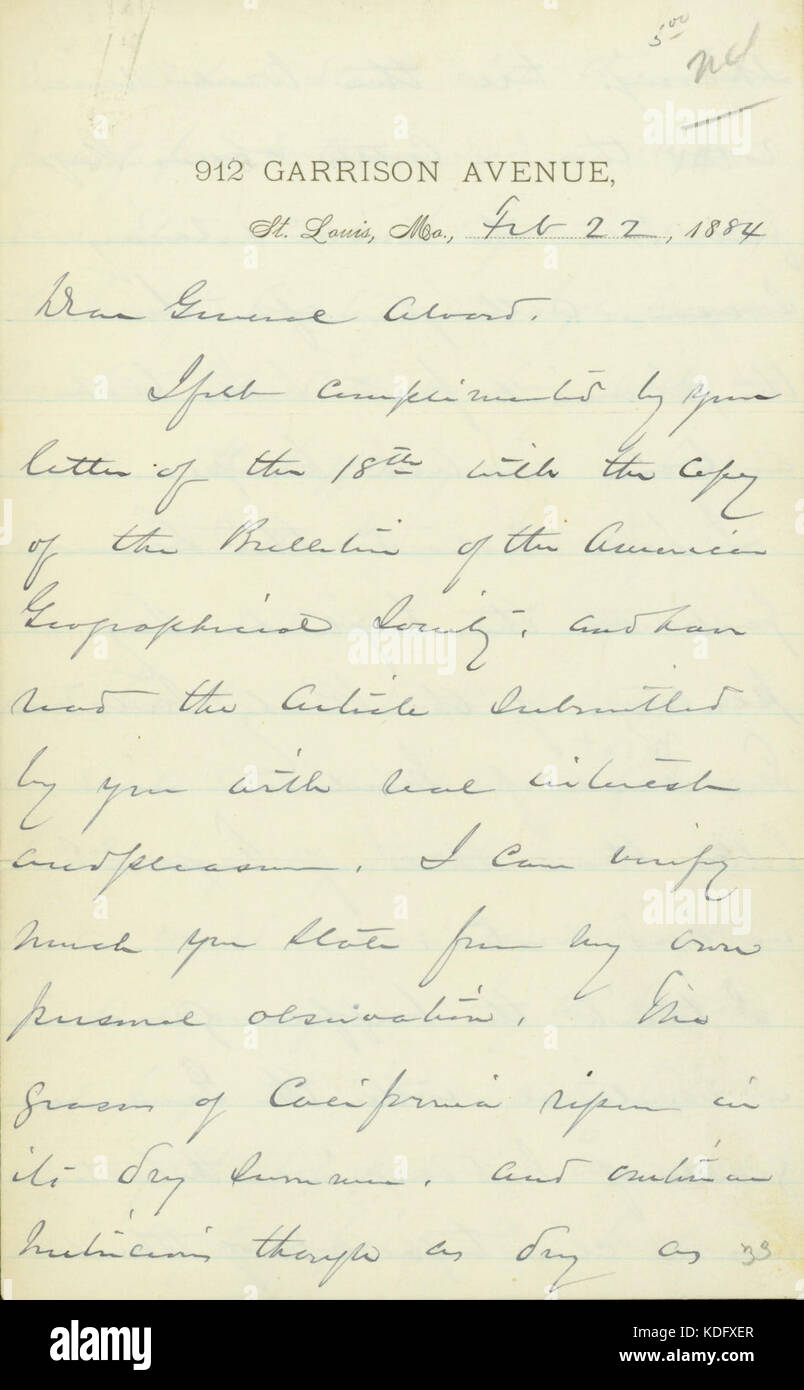 5 00
912 GARRISON AVENUE,
St. Louis, Mo., Feb 22, 1884
Dear General Alvord.
I feel complimented by your
letter of the 18th with the copy
of the Bulletin of the American
Geographical Society, and have
read the Article submitted
by you with real interest
and pleasure. I can verify
much you state from my own
personal observation. The
grasses of California ripen in
its dry summer, and
nutricious though as dry as
alamy stock photo
alamy
Image ID: KDFXER
www.alamy.com